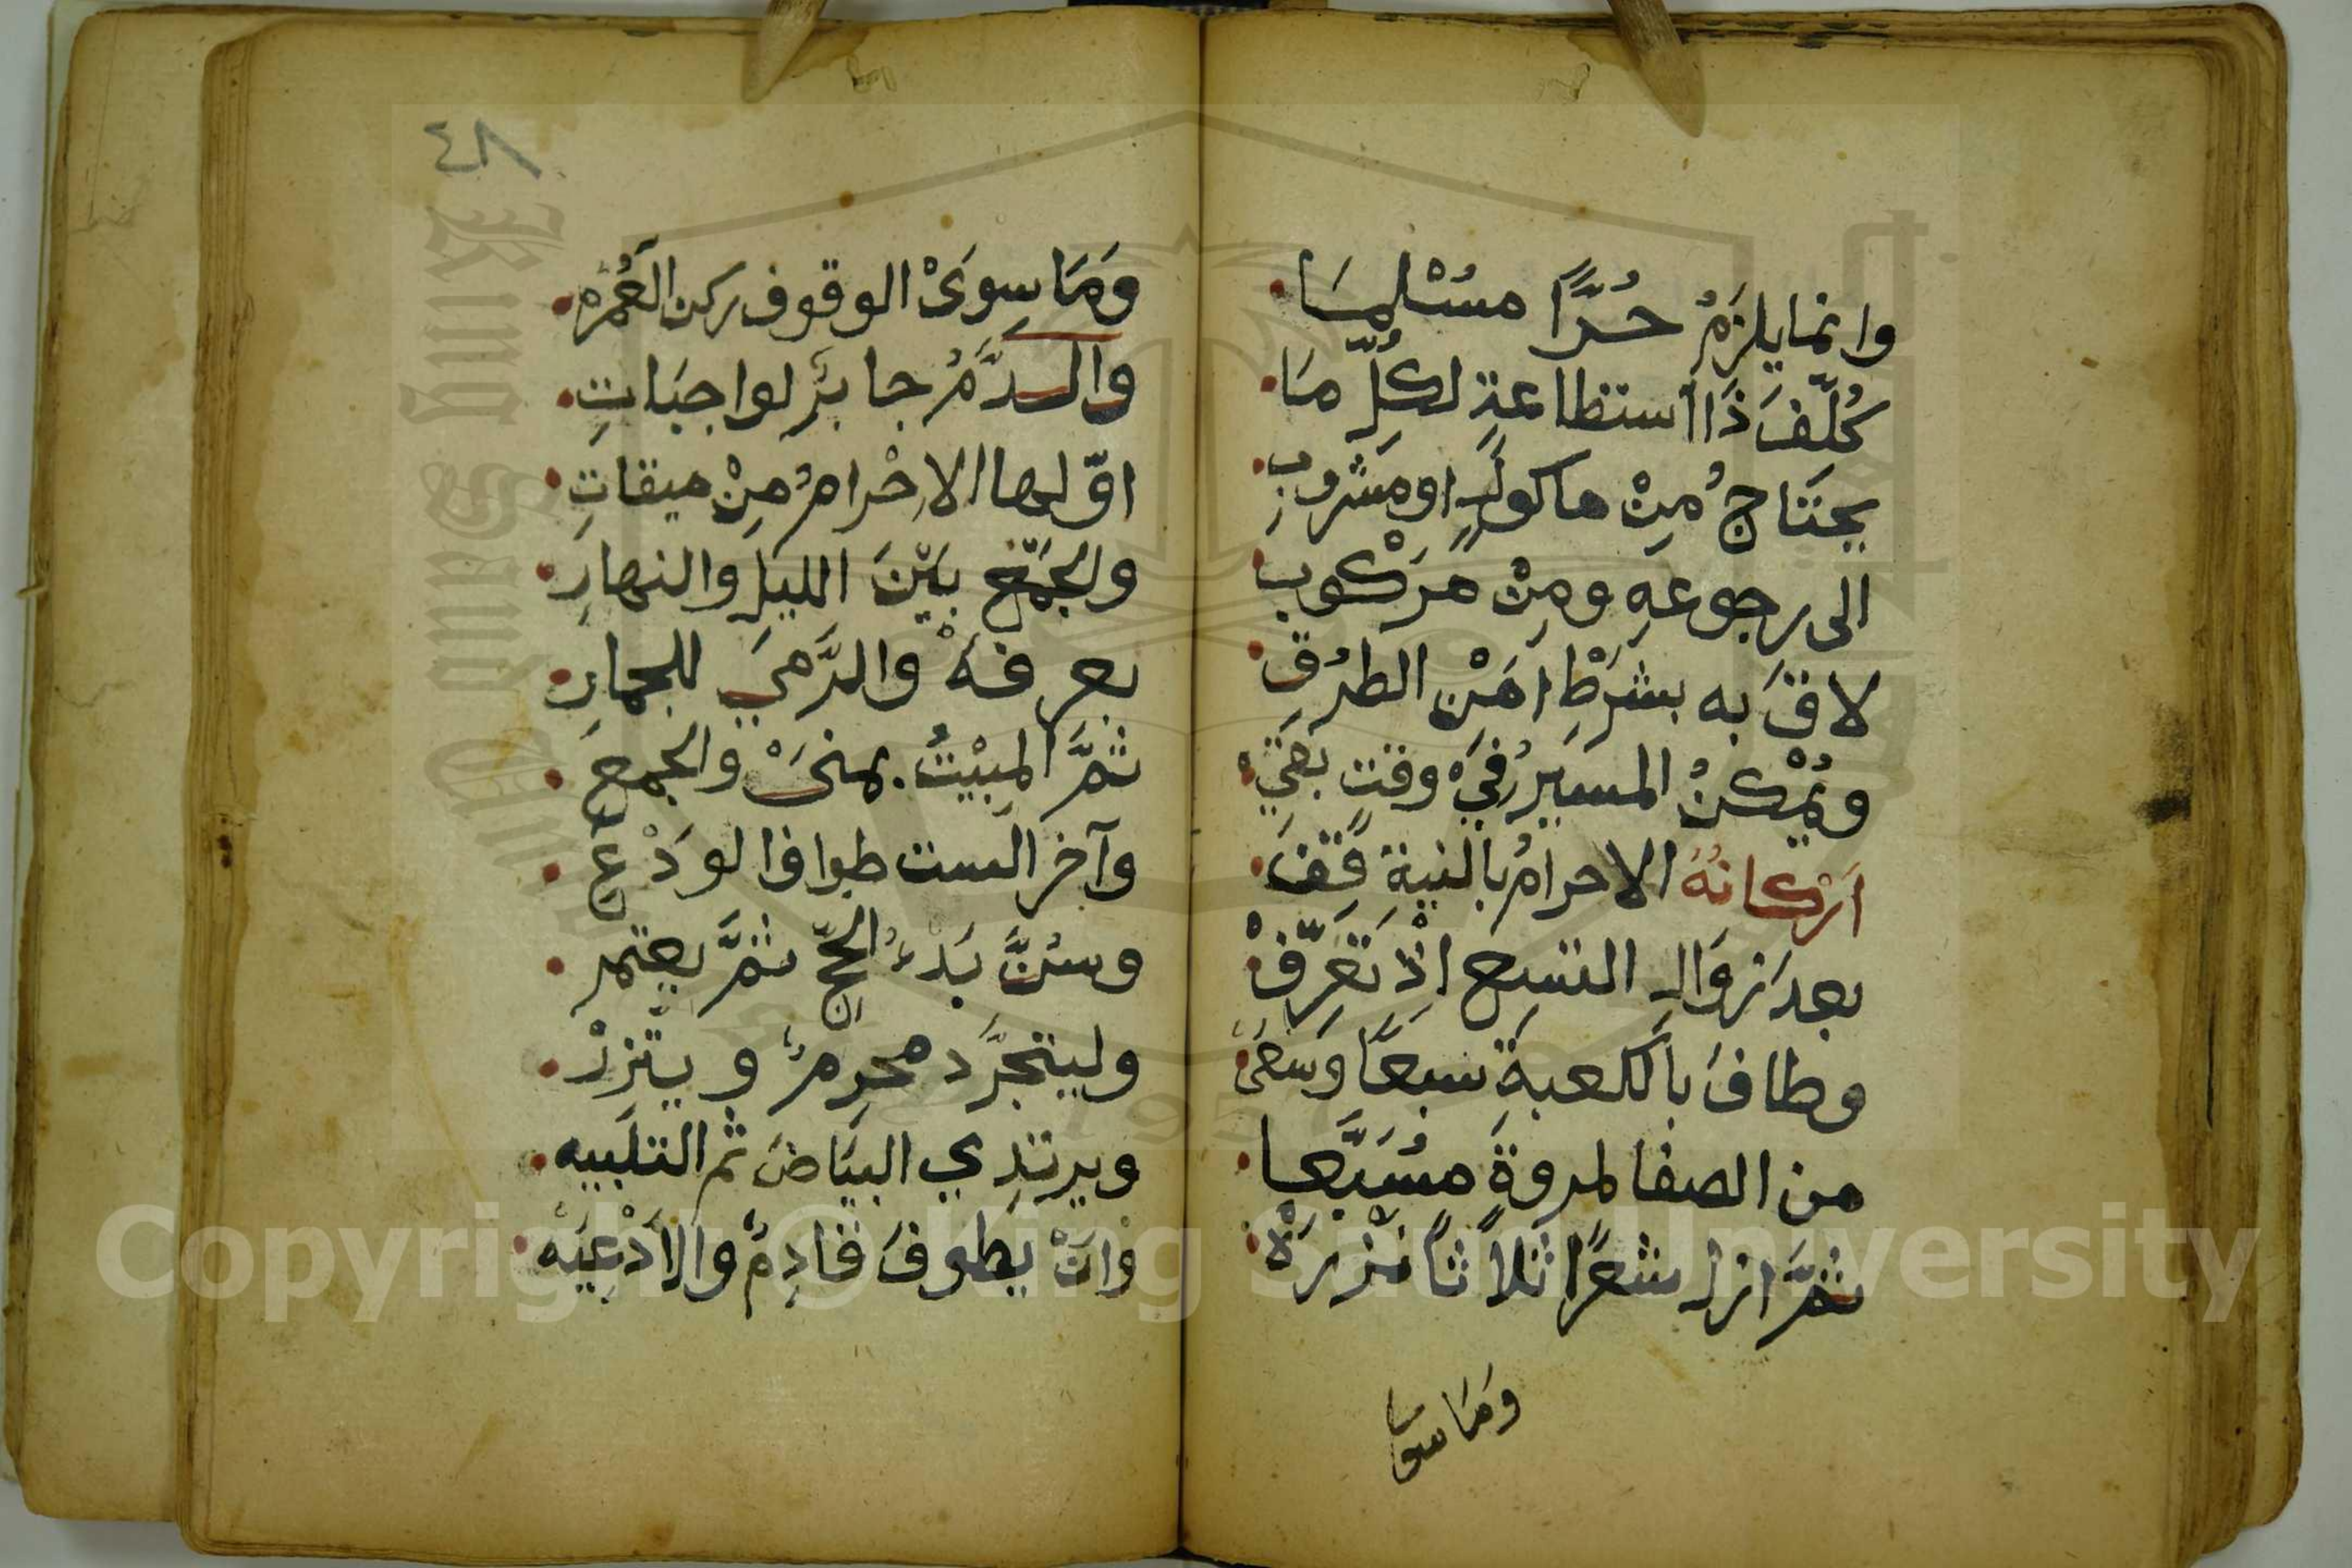 وانما يلزَمُ حُرًّا مسُسْلِمسَا
كُلّفَ ذَا استطاعةٍ لكُلِّ مَا
يحتَاجُ مِنْ ماكولٍ او مَشْروبِ
الى رجوعهِ ومِنْ مَركُوب
لاقَ به بشَرْطِ امْنِ الطرُقِ
ويُمْكنُ المسيرُ في وقتٍ بقي
اَركانُهُ الاحرامُ بالنيةِ قِفَ
بعد زَوَالِ التسع اِذْ تَعَرِّفْ
وطافَ بالكعبةَ سَبعًا وَسَعَىْ
من الصفا لمروةَ مُسَبَّعا
ثمَّ ازل شعرًا ثلاثًا نَزْرَهْ
ومَا سوا
٤٨
وَمَا سِوىَ الوقوف ركن العُمْرَه
والدَّمُ جابرٌ لواجبَاتِ
اوّلها الاِحْرامُ مِنْ ميقاتِ
والجَمْع بَيْنَ الليلِ والنهارِ
بعرفهْ والرَّميَ للجمارِ
ثمَّ المَبِيْتُ بمنىَ والجمعِ
وآخر الست طوافا لودْعِ
وسُنَّ بَدْءُ الحجِّ ثمَّ يعتمر
وليتجرَّد محرِمٌ ويتزرْ
ويرتدِي البيَاضَ ثم التلبيه
وَانْ يطوفَ قادِمٌ والاَدْعِيَهْ
Copyright © King Saud University
King Saud